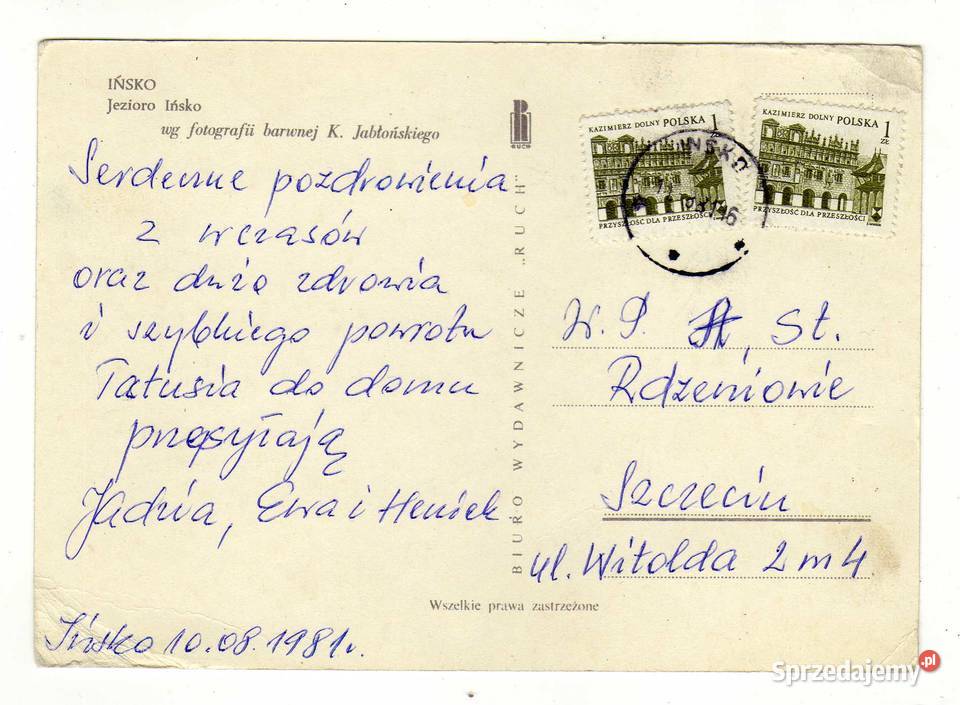 IŃSKO
Jezioro Ińsko
wg fotografii barwnej K. Jabłońskiego
Serdeczne pozdrowienia
z wczasów
oraz dużo zdrowia
i szybkiego powrotu
Tatusia do domu
przesyłają
Jadzia, Ewa i Heniek
Ińsko 10.08.1981r.
RUCH
BIURO WYDAWNICZE „RUCH"
Wszelkie prawa zastrzeżone
KAZIMIERZ DOLNY POLSKA 1 ZŁ
PRZYSZŁOŚĆ DLA PRZESZŁOŚCI
KAZIMIERZ DOLNY POLSKA 1 ZŁ
PRZYSZŁOŚĆ DLA PRZESZŁOŚCI
IŃSKO
W. P. , St.
Rdzeniowie
Szczecin
ul. Witolda 2 m 4
Sprzedajemy.pl